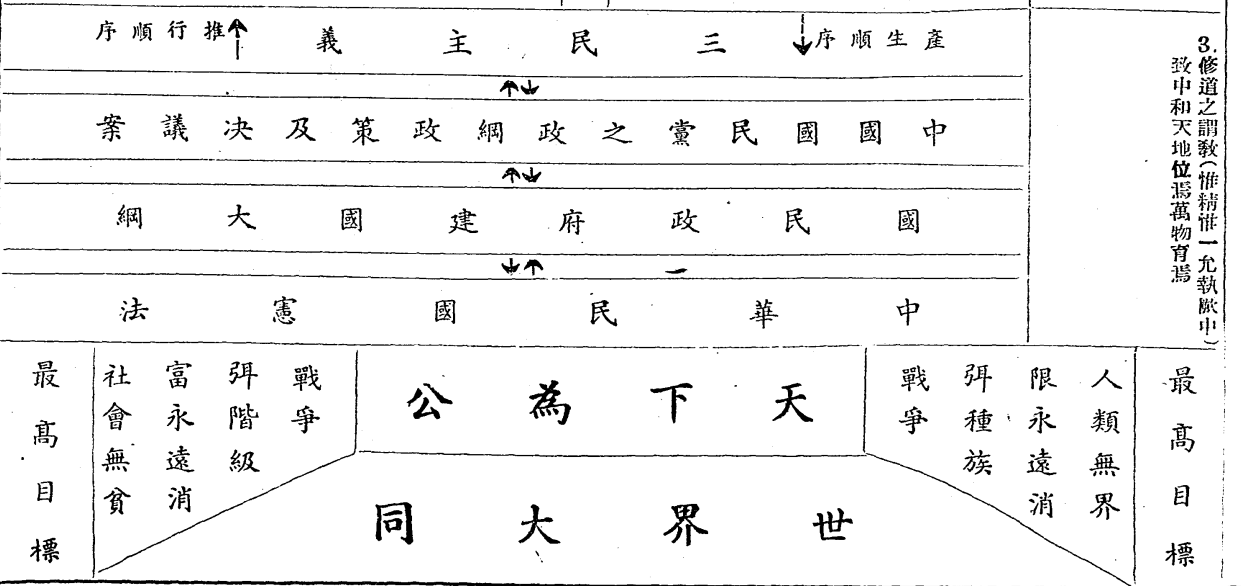 3.修道之謂教(惟精惟一允執厥中)
致中和天地位焉萬物育焉
產生順序
三民主義
推行順序
中國國民黨之政綱政策及决議案
國民政府建國大綱
中華民國憲法
最高目標
人類無界
限永遠消
弭種族
戰爭
天下為公
世界大同
社會無貧
富永遠消
弭階級
戰爭
最高目標